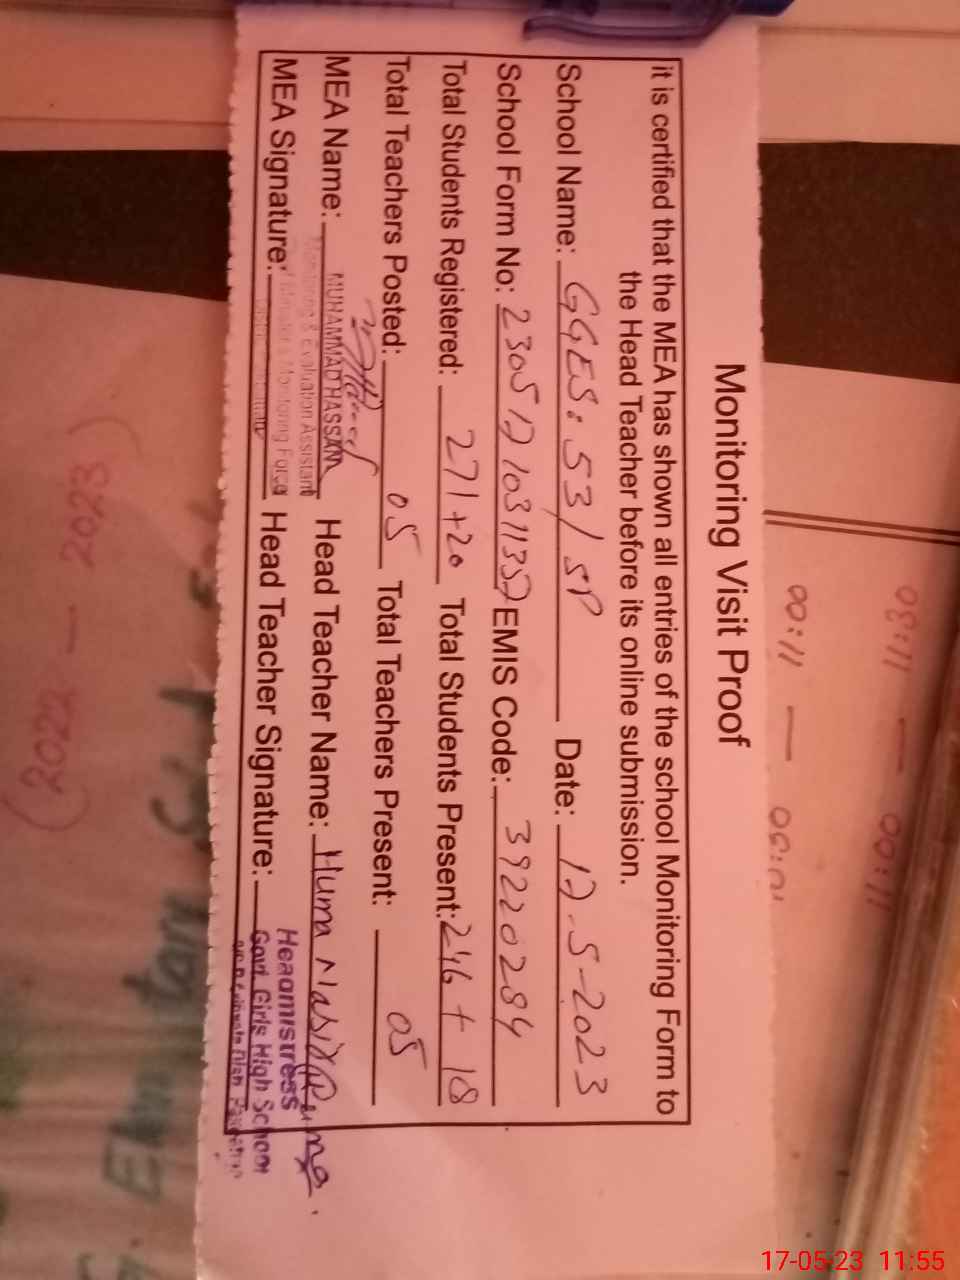 Monitoring Visit Proof
it is certified that the MEA has shown all entries of the school Monitoring Form to
the Head Teacher before its online submission.
School Name: GGES: 53/SP Date: 17-5-2023
School Form No: 2305171031135 EMIS Code: 39220284
Total Students Registered: 271+20 Total Students Present: 246 + 18
Total Teachers Posted: 05 Total Teachers Present: 05
MEA Name: MUHAMMAD HASSAN Head Teacher Name: Huma Nasir
Monitoring & Evaluation Assistant
MEA Signature: Monitoring Force Head Teacher Signature:
Headmistress
Govt Girls High School
11:30 — 11:00
11:00 — 10:30
2022 — 2023
17-05-23 11:55